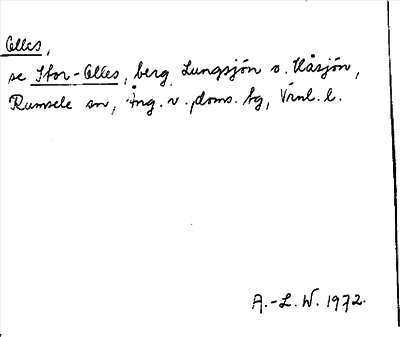 Olles,
se Stor-Olles, berg, Lungsjön o. Håsjön,
Ramsele sn, Ång. v. doms. tg, Vrnl. l.
A.-L. W. 1972.